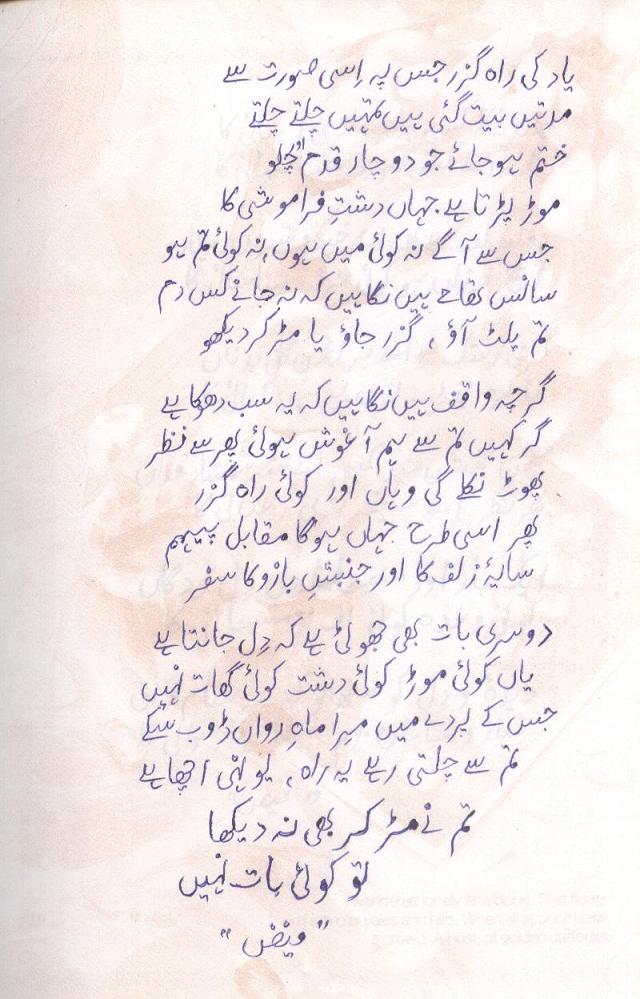 یاد کی راہ گزر جس پہ اِسی صورت سے
مدتیں بیت گئی ہیں تمہیں چلتے چلتے
ختم ہو جائے جو دو چار قدم اور چلو
موڑ پڑتا ہے جہاں دشتِ فراموشی کا
جس سے آگے نہ کوئی میں ہوں، نہ کوئی تم ہو
سانس تھامے ہیں نگاہیں کہ نہ جانے کس دم
تم پلٹ آؤ، گزر جاؤ یا مڑ کر دیکھو
گرچہ واقف ہیں نگاہیں کہ یہ سب دھوکا ہے
گر کہیں تم سے ہم آغوش ہوئی پھر سے نظر
پھوٹ نکلے گی وہاں اور کوئی راہ گزر
پھر اسی طرح جہاں ہو گا مقابل پیہم
سایۂ زلف کا اور جنبشِ بازو کا سفر
دوسری بات بھی جھوٹی ہے کہ دِل جانتا ہے
یاں کوئی موڑ کوئی دشت کوئی گھات نہیں
جس کے پردے میں میرا ماہِ رواں ڈوب سکے
تم سے چلتی رہے یہ راہ، یونہی اچھا ہے
تم نے مڑ کر بھی نہ دیکھا
تو کوئی بات نہیں
"فیض"